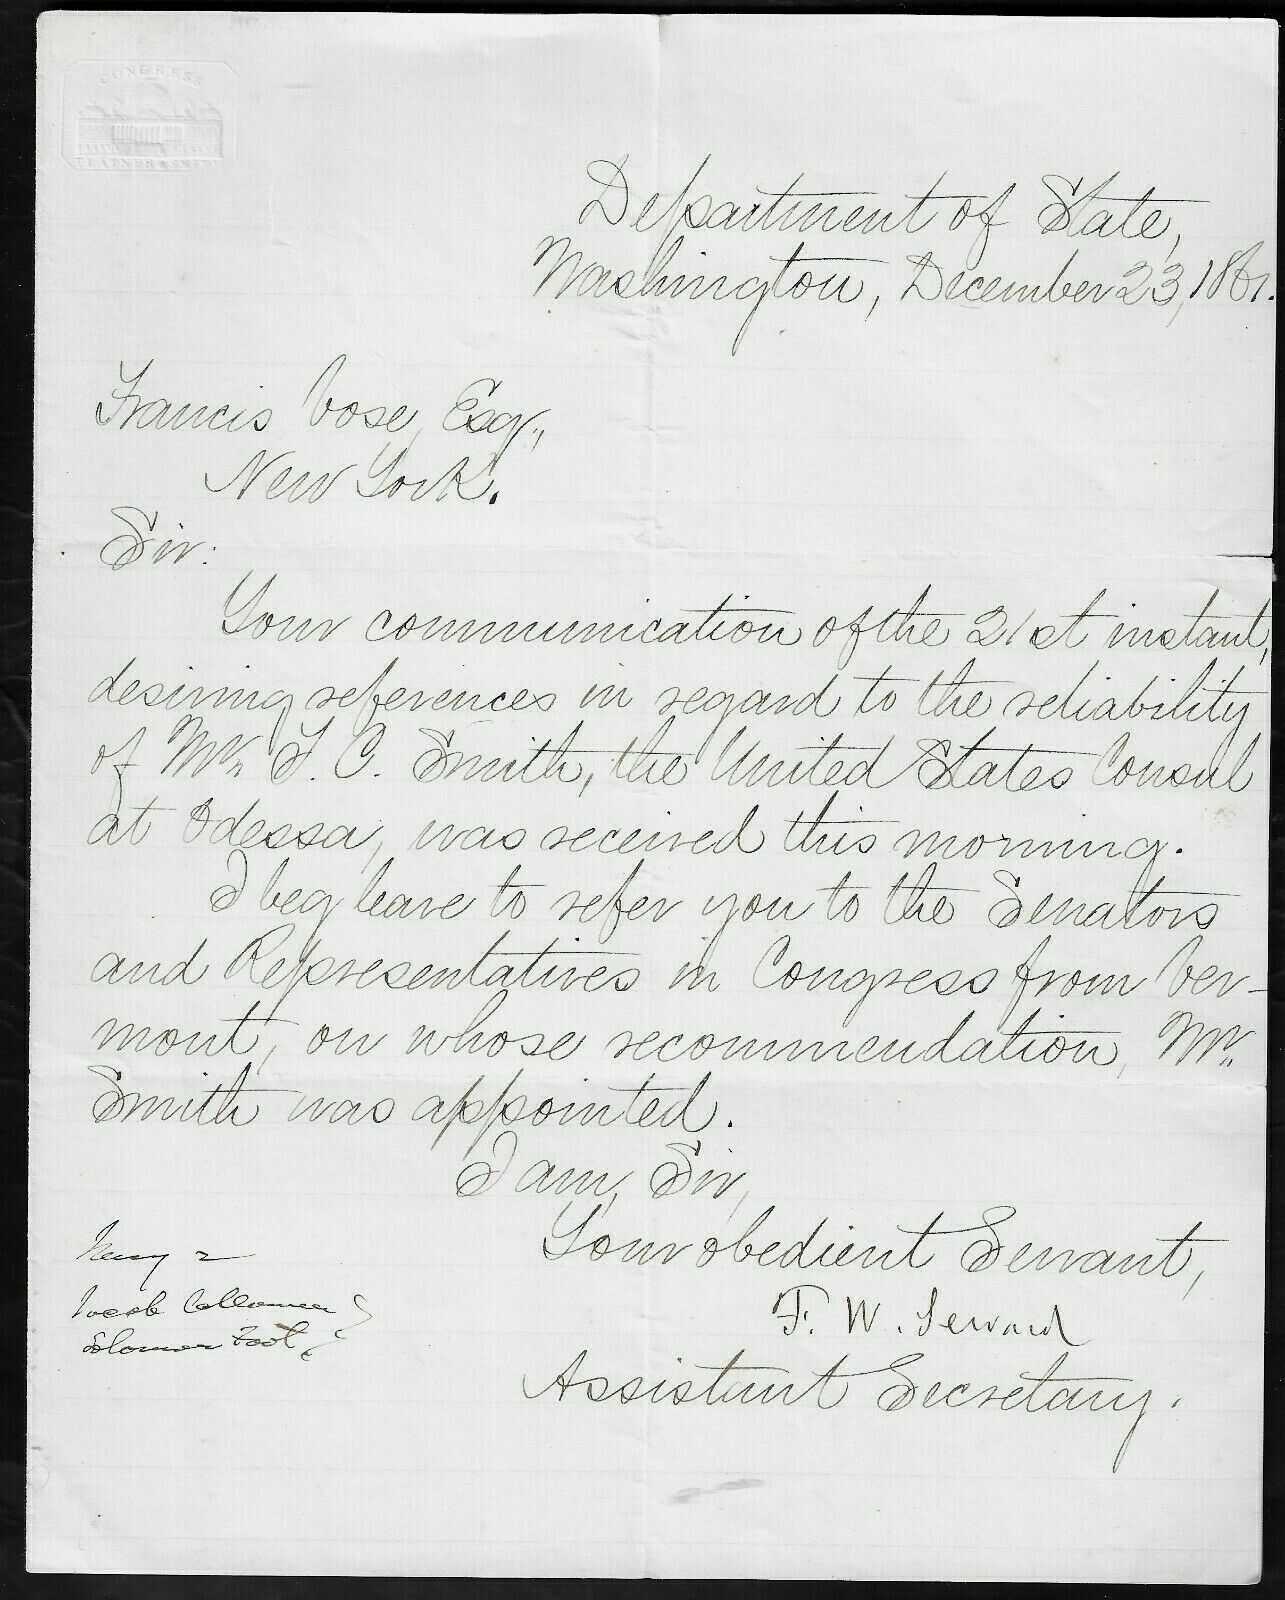 CONGRESS
Department of State,
Washington, December 23, 1861.
Francis Vose, Esqr.,
New York.
Sir:
Your communication of the 21st instant,
desiring references in regard to the reliability
of Mr. T. C. Smith, the United States Consul
at Odessa, was received this morning.
I beg leave to refer you to the Senators
and Representatives in Congress from Ver-
mont, on whose recommendation, Mr.
Smith was appointed.
I am, Sir,
Your obedient Servant,
F. W. Seward
Assistant Secretary.
Jacob Collamer
Solomon Foot